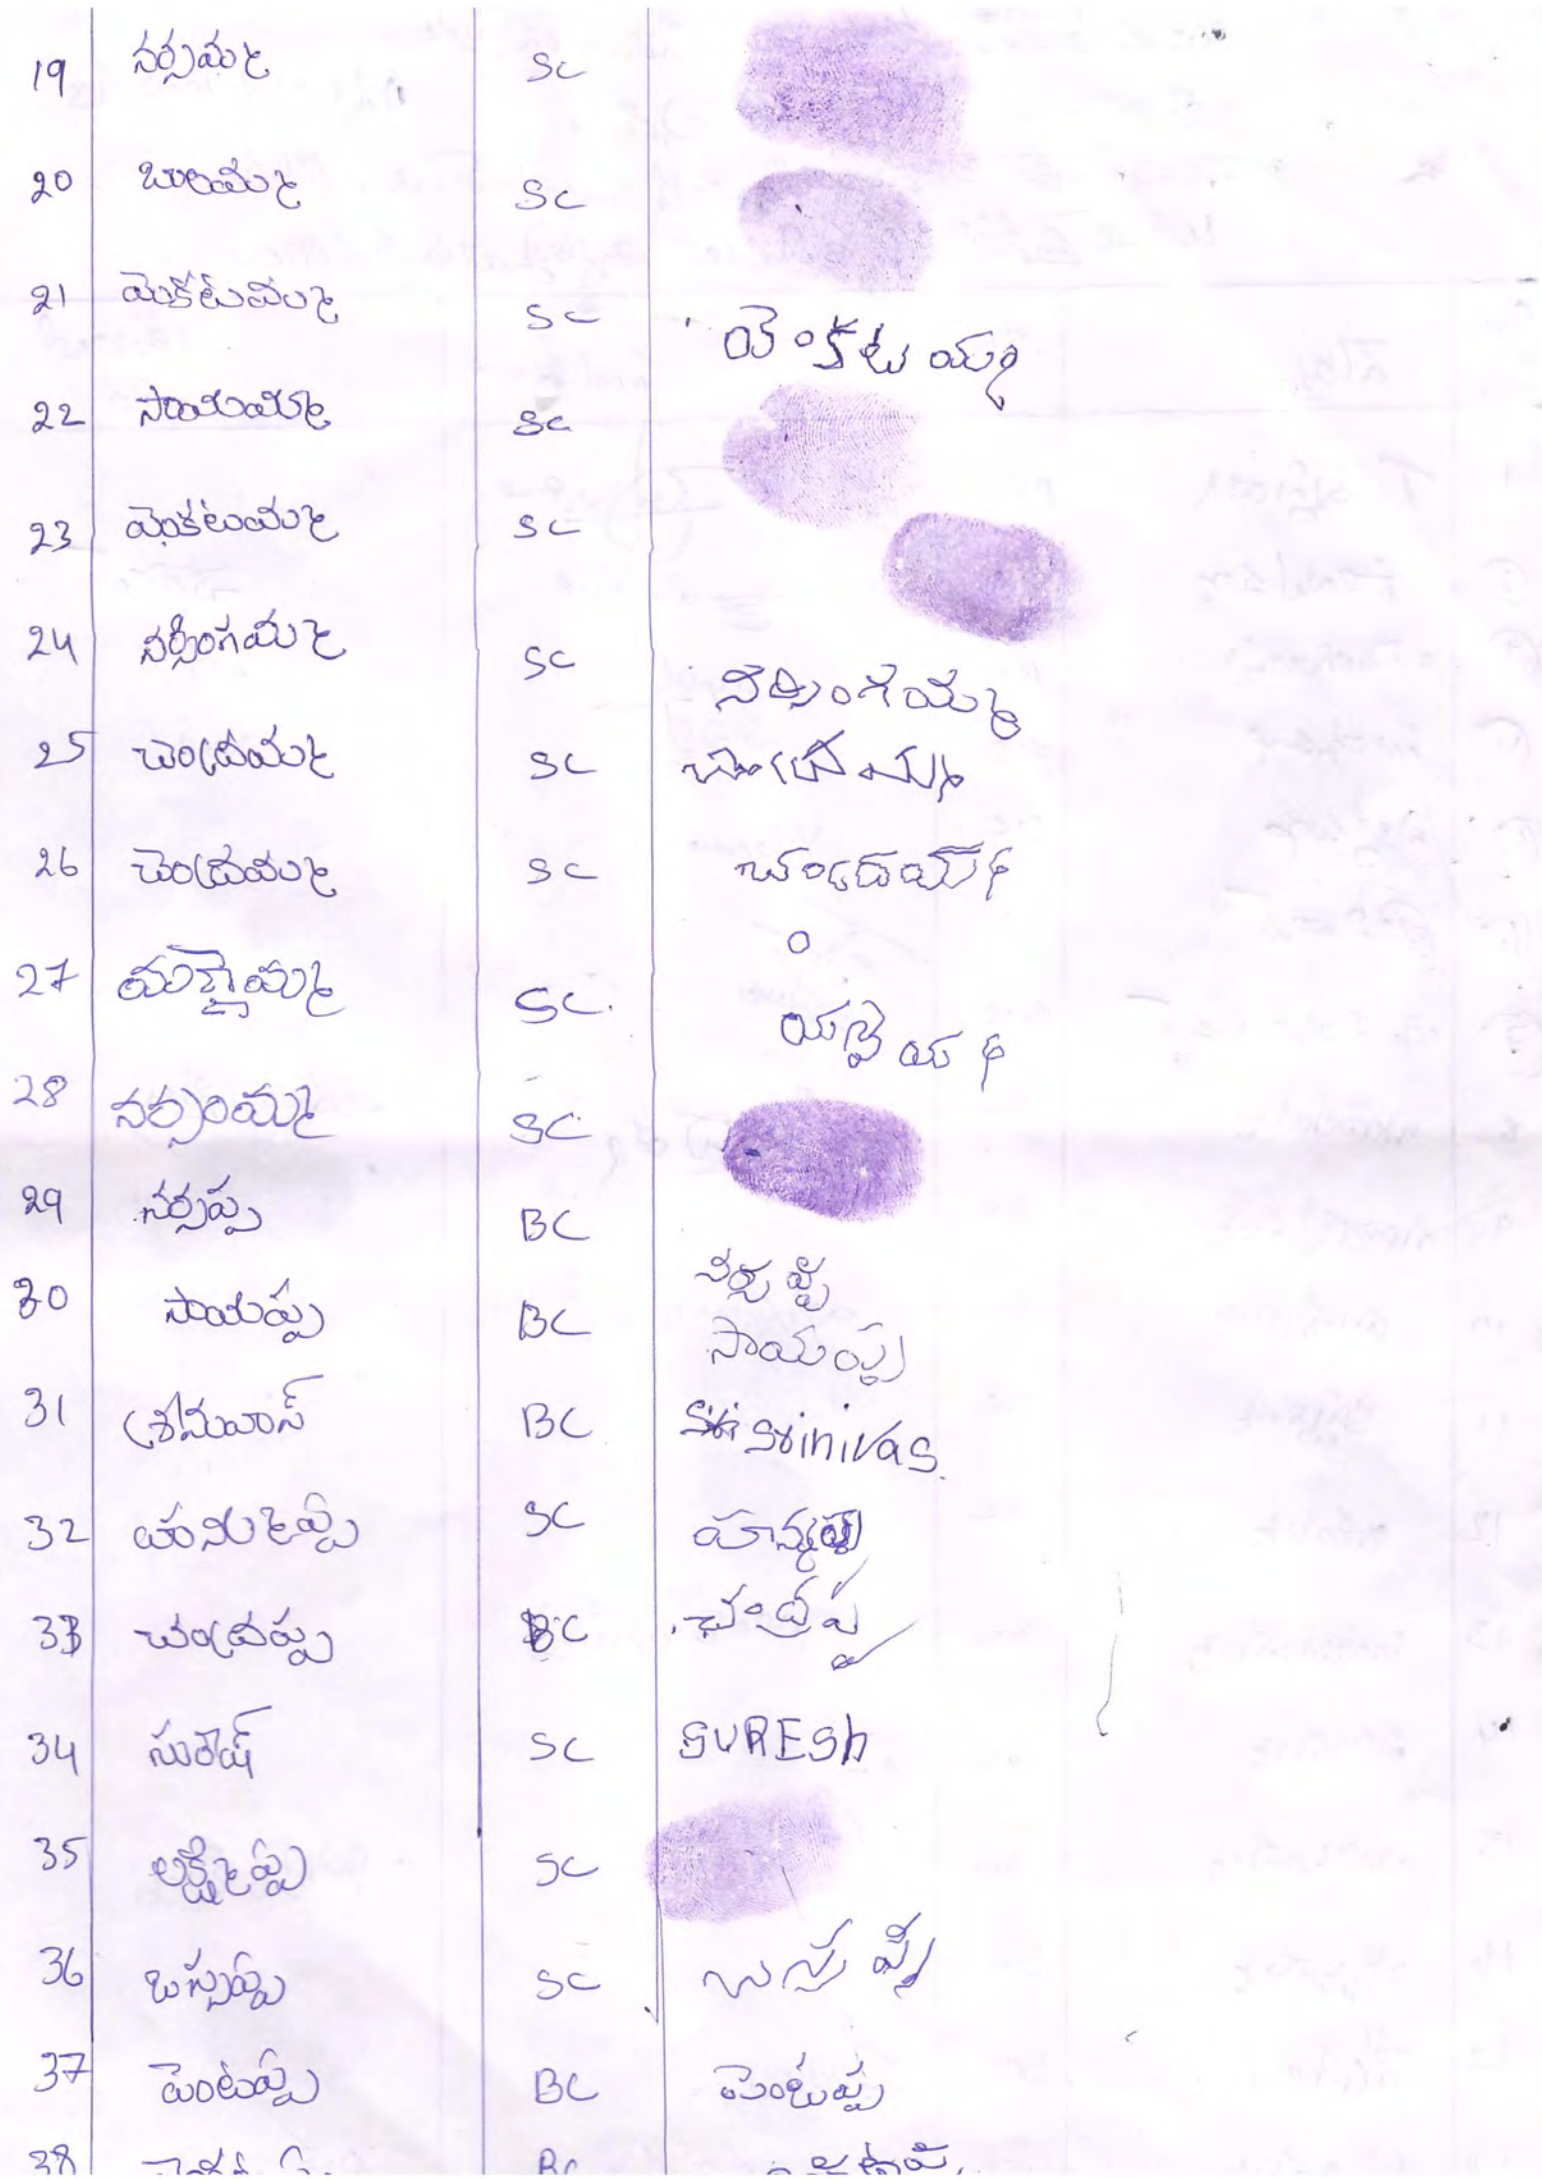 19 నర్సయ్య SC
20 SC
21 వెంకటయ్య SC యెంకటయ్య
22 సాయయ్య SC
23 వెంకటయ్య SC
24 నర్సింగయ్య SC నర్సింగయ్య
25 చంద్రయ్య SC చంద్రయ్య
26 చంద్రయ్య SC చంద్రయ్య
27 SC
28 SC
29 నర్సప్ప BC నర్సప్ప
30 సాయప్ప BC సాయప్ప
31 శ్రీనివాస్ BC Srinivas.
32 SC
33 చంద్రప్ప BC చంద్రప్ప
34 సురేష్ SC SURESh
35 లక్ష్మప్ప SC
36 బస్సప్ప SC
37 పెంటప్ప BC పెంటప్ప
38 BC